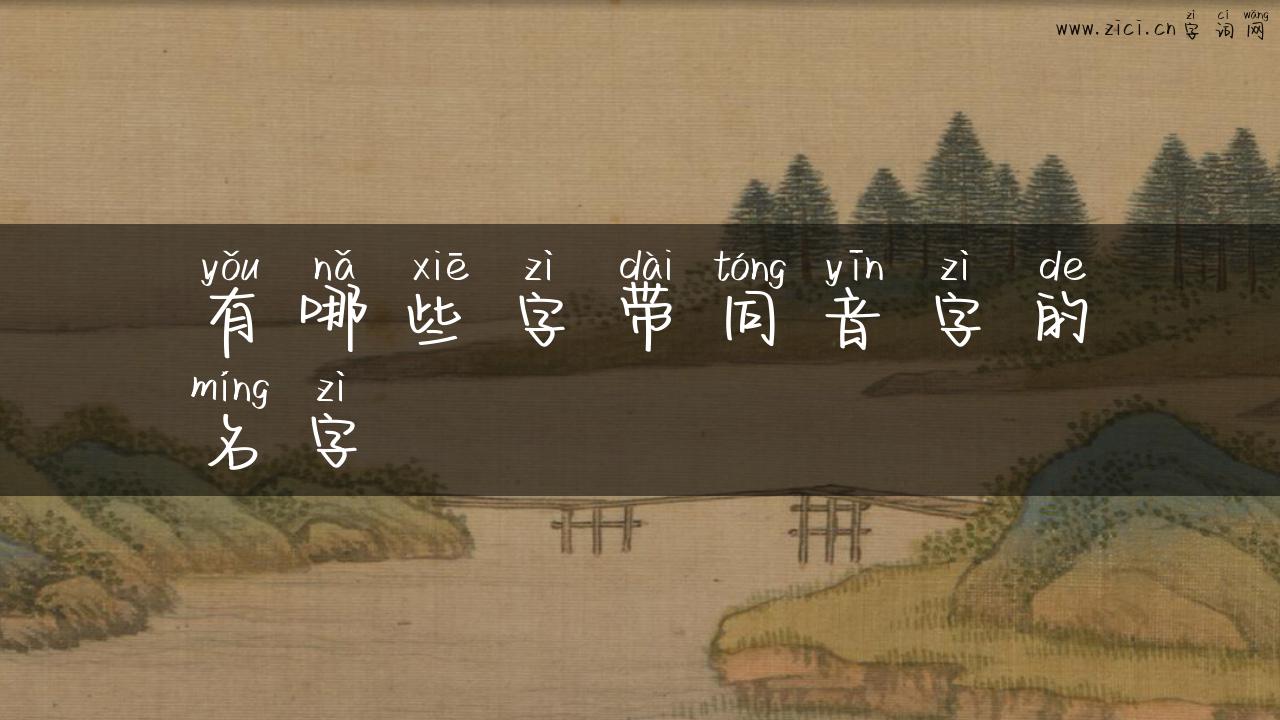 zì cí wǎng
www.zici.cn 字词网
yǒu nǎ xiē zì dài tóng yīn zì de
有哪些字带同音字的
míng zì
名字